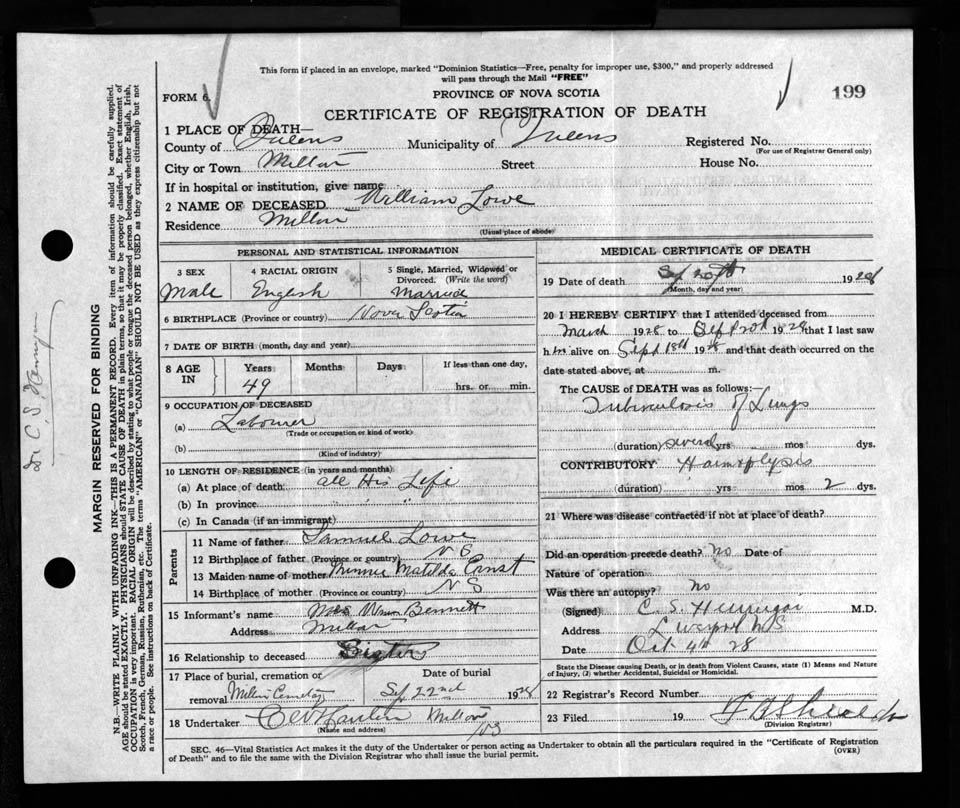 This form if placed in an envelope, marked "Dominion Statistics—Free, penalty for improper use, $300," and properly addressed
will pass through the Mail "FREE"
FORM 6.
PROVINCE OF NOVA SCOTIA
199
CERTIFICATE OF REGISTRATION OF DEATH
1 PLACE OF DEATH—
County of Queens Municipality of Queens Registered No.
(For use of Registrar General only)
City or Town Milton Street House No.
If in hospital or institution, give name
2 NAME OF DECEASED William Lowe
Residence Milton
(Usual place of abode)
PERSONAL AND STATISTICAL INFORMATION
3 SEX 4 RACIAL ORIGIN 5 Single, Married, Widowed or
Divorced. (Write the word)
Male English Married
6 BIRTHPLACE (Province or country) Nova Scotia
7 DATE OF BIRTH (month, day and year)
8 AGE IN Years Months Days If less than one day,
49 hrs. or min.
9 OCCUPATION OF DECEASED
(a) Labourer
(Trade or occupation or kind of work)
(b)
(Kind of industry)
10 LENGTH OF RESIDENCE (in years and months)
(a) At place of death all His Life
(b) In province " " "
(c) In Canada (if an immigrant)
Parents
11 Name of father Samuel Lowe
12 Birthplace of father (Province or country) N S
13 Maiden name of mother Minnie Matilda Ernst
14 Birthplace of mother (Province or country) N S
15 Informant's name Mrs Wm Bennett
Address Milton
16 Relationship to deceased Sister
17 Place of burial, cremation or Date of burial
removal Milton Cemetery Sep 22nd 1928
18 Undertaker Milton
(Name and address) NS
MEDICAL CERTIFICATE OF DEATH
19 Date of death Sep 20th 1928
(Month, day and year)
20 I HEREBY CERTIFY that I attended deceased from
March 1928 to Sep 20th 1928 that I last saw
him alive on Sept 18th 1928 and that death occurred on the
date stated above, at m.
The CAUSE of DEATH was as follows:
Tuberculosis of Lungs
(duration) several yrs mos dys.
CONTRIBUTORY Haemoptysis
(duration) yrs mos 2 dys.
21 Where was disease contracted if not at place of death?
Did an operation precede death? no Date of
Nature of operation
Was there an autopsy? no
(Signed) C. S. Hennigar M.D.
Address Liverpool N.S
Date Oct 4th 28
State the Disease causing Death, or in death from Violent Causes, state (1) Means and Nature
of Injury, (2) whether Accidental, Suicidal or Homicidal.
22 Registrar's Record Number
23 Filed 19
(Division Registrar)
SEC. 46—Vital Statistics Act makes it the duty of the Undertaker or person acting as Undertaker to obtain all the particulars required in the "Certificate of Registration
of Death" and to file the same with the Division Registrar who shall issue the burial permit. (OVER)
MARGIN RESERVED FOR BINDING
N.B.—WRITE PLAINLY WITH UNFADING INK—THIS IS A PERMANENT RECORD. Every item of information should be carefully supplied.
AGE should be stated EXACTLY. PHYSICIANS should STATE CAUSE OF DEATH in plain terms, so that it may be properly classified. Exact statement of
OCCUPATION is very important. RACIAL ORIGIN will be described by stating to what people or tongue the deceased person belonged, whether English, Irish,
Scotch, French, German, Russian, Ruthenian, etc. The terms "AMERICAN" or "CANADIAN" SHOULD NOT BE USED as they express citizenship but not
a race or people. See instructions on back of Certificate.
Dr. C. S. Hennigar